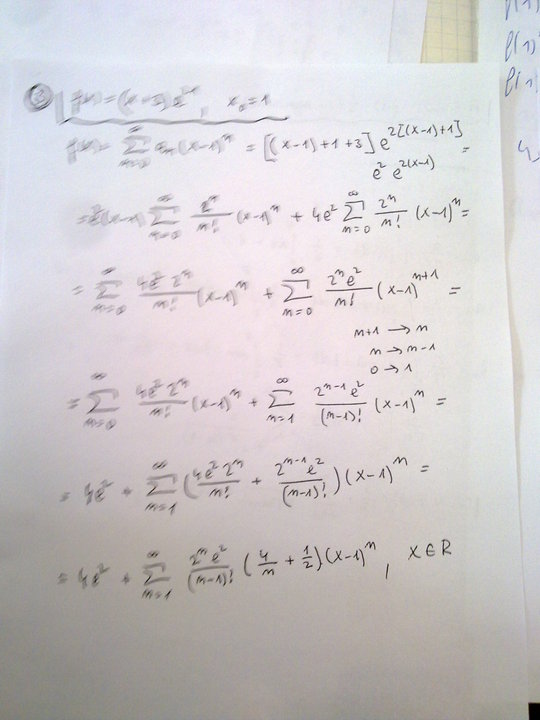 ③ f(x) = (x+3)e^{2x}, x₀=1
f(x) = ∑_{n=0}^{∞} aₙ(x-1)^n = [(x-1)+1+3] e^{2[(x-1)+1]} =
e² e^{2(x-1)}
= e²(x-1) ∑_{n=0}^{∞} 2^n/n! (x-1)^n + 4e² ∑_{n=0}^{∞} 2^n/n! (x-1)^n =
= ∑_{n=0}^{∞} 4e² 2^n/n! (x-1)^n + ∑_{n=0}^{∞} 2^n e²/n! (x-1)^{n+1} =
n+1 → n
n → n-1
0 → 1
= ∑_{n=0}^{∞} 4e² 2^n/n! (x-1)^n + ∑_{n=1}^{∞} 2^{n-1} e²/(n-1)! (x-1)^n =
= 4e² + ∑_{n=1}^{∞} (4e² 2^n/n! + 2^{n-1} e²/(n-1)!) (x-1)^n =
= 4e² + ∑_{n=1}^{∞} 2^n e²/(n-1)! (4/n + 1/2)(x-1)^n, x∈R